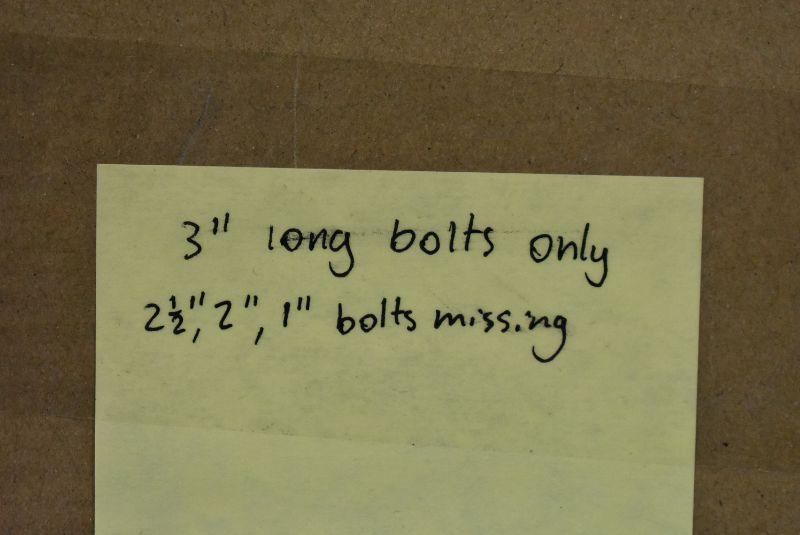 3" long bolts only
2½", 2", 1" bolts missing